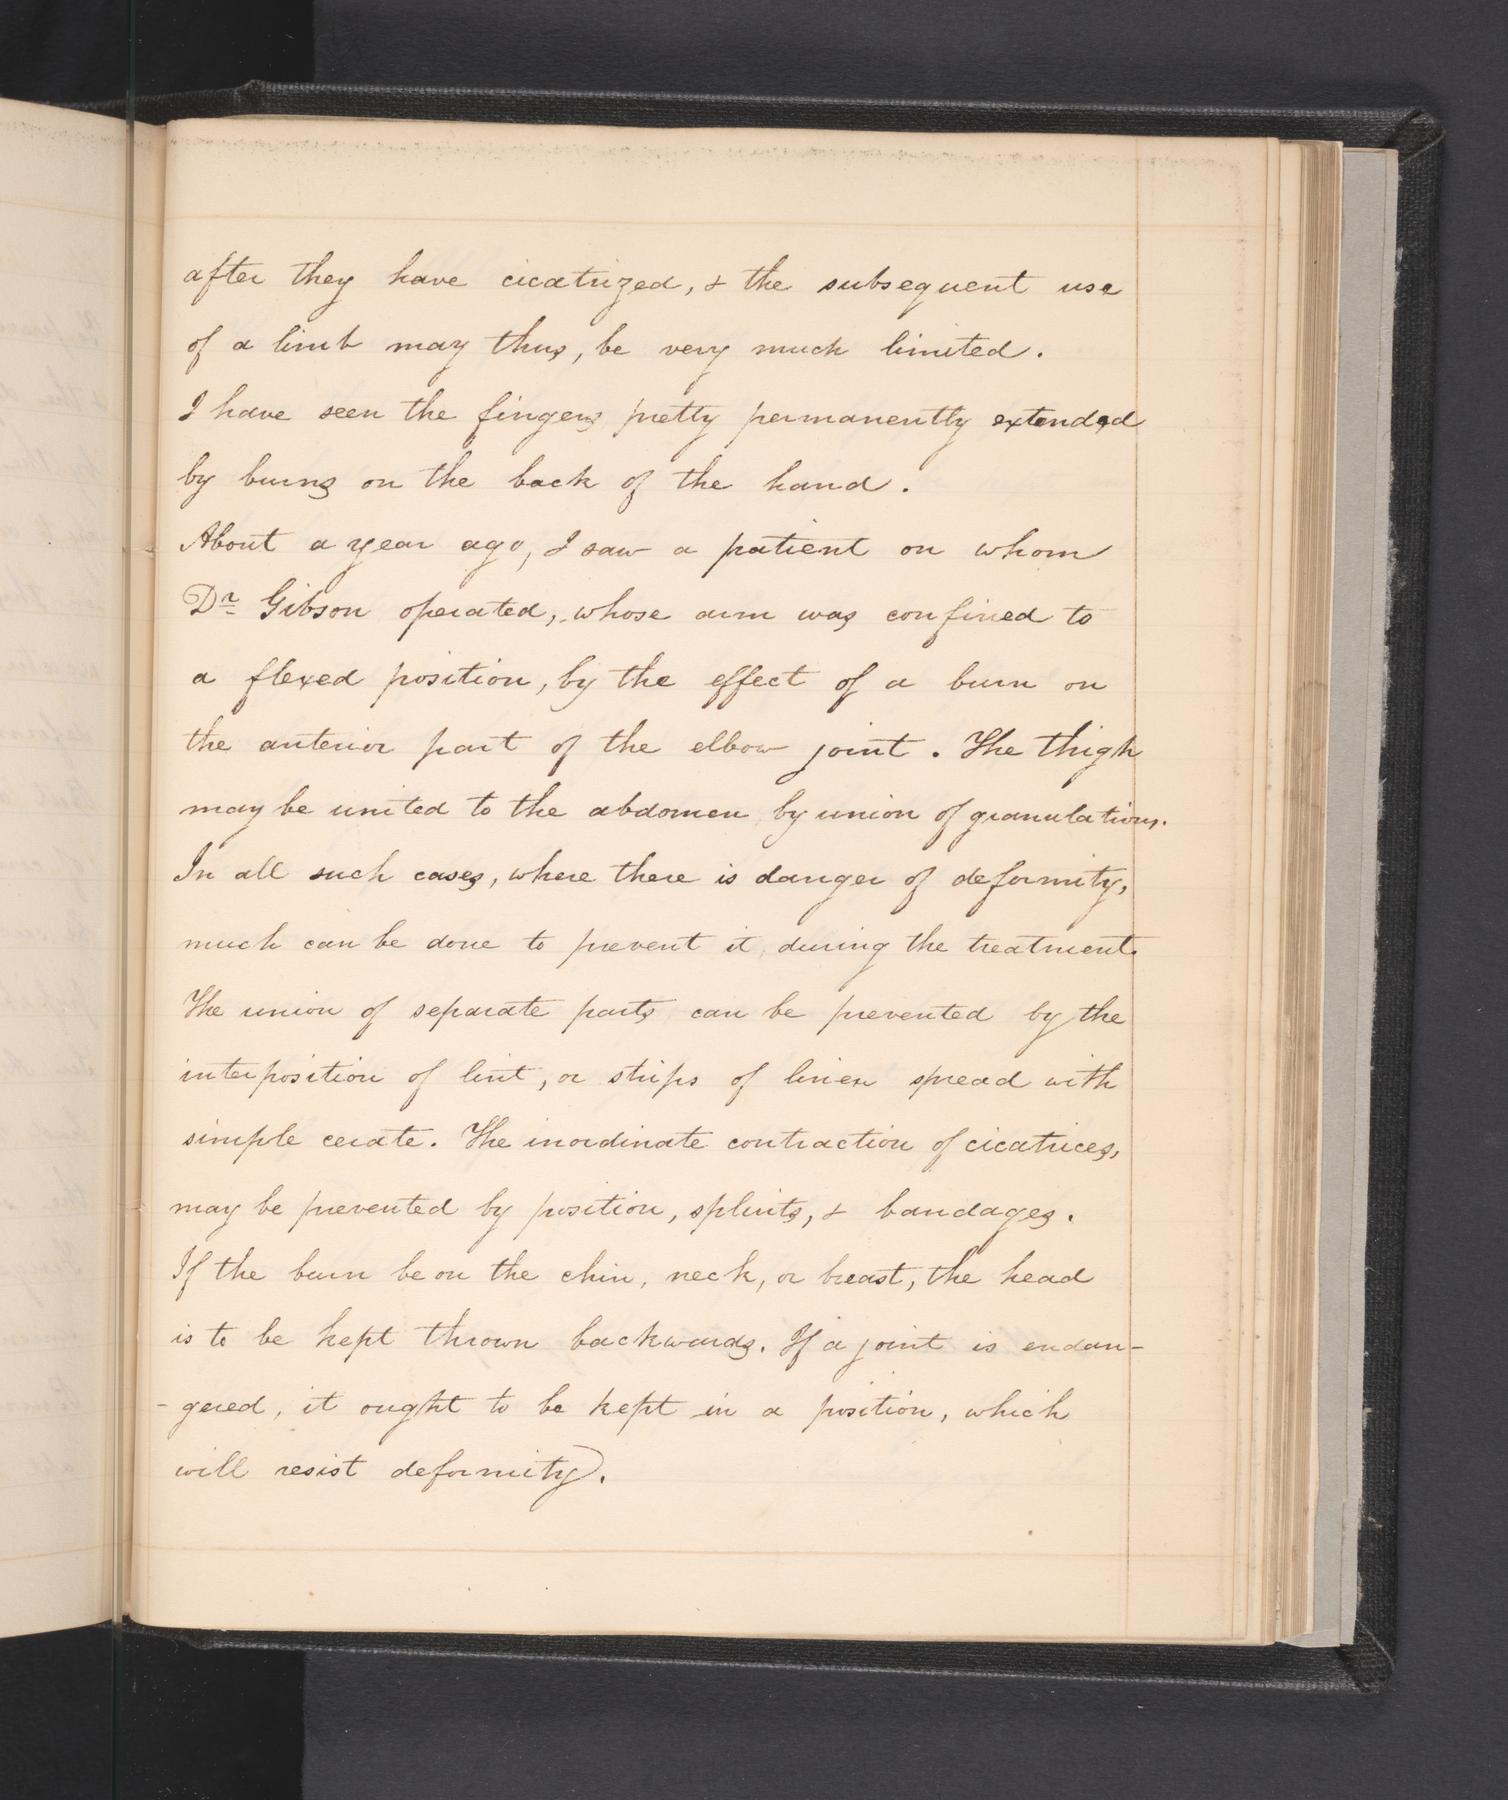 after they have cicatrized, & the subsequent use
of a limb may thus, be very much limited.
I have seen the fingers pretty permanently extended
by burns on the back of the hand.
About a year ago, I saw a patient on whom
Dr Gibson operated, whose arm was confined to
a flexed position, by the effect of a burn on
the anterior part of the elbow joint. The thigh
may be united to the abdomen by union of granulations.
In all such cases, where there is danger of deformity,
much can be done to prevent it, during the treatment.
The union of separate parts can be prevented by the
interposition of lint, or strips of linen spread with
simple cerate. The inordinate contraction of cicatrices,
may be prevented by position, splints, & bandages.
If the burn be on the chin, neck, or breast, the head
is to be kept thrown backwards. If a joint is endan-
-gered, it ought to be kept in a position, which
will resist deformity.